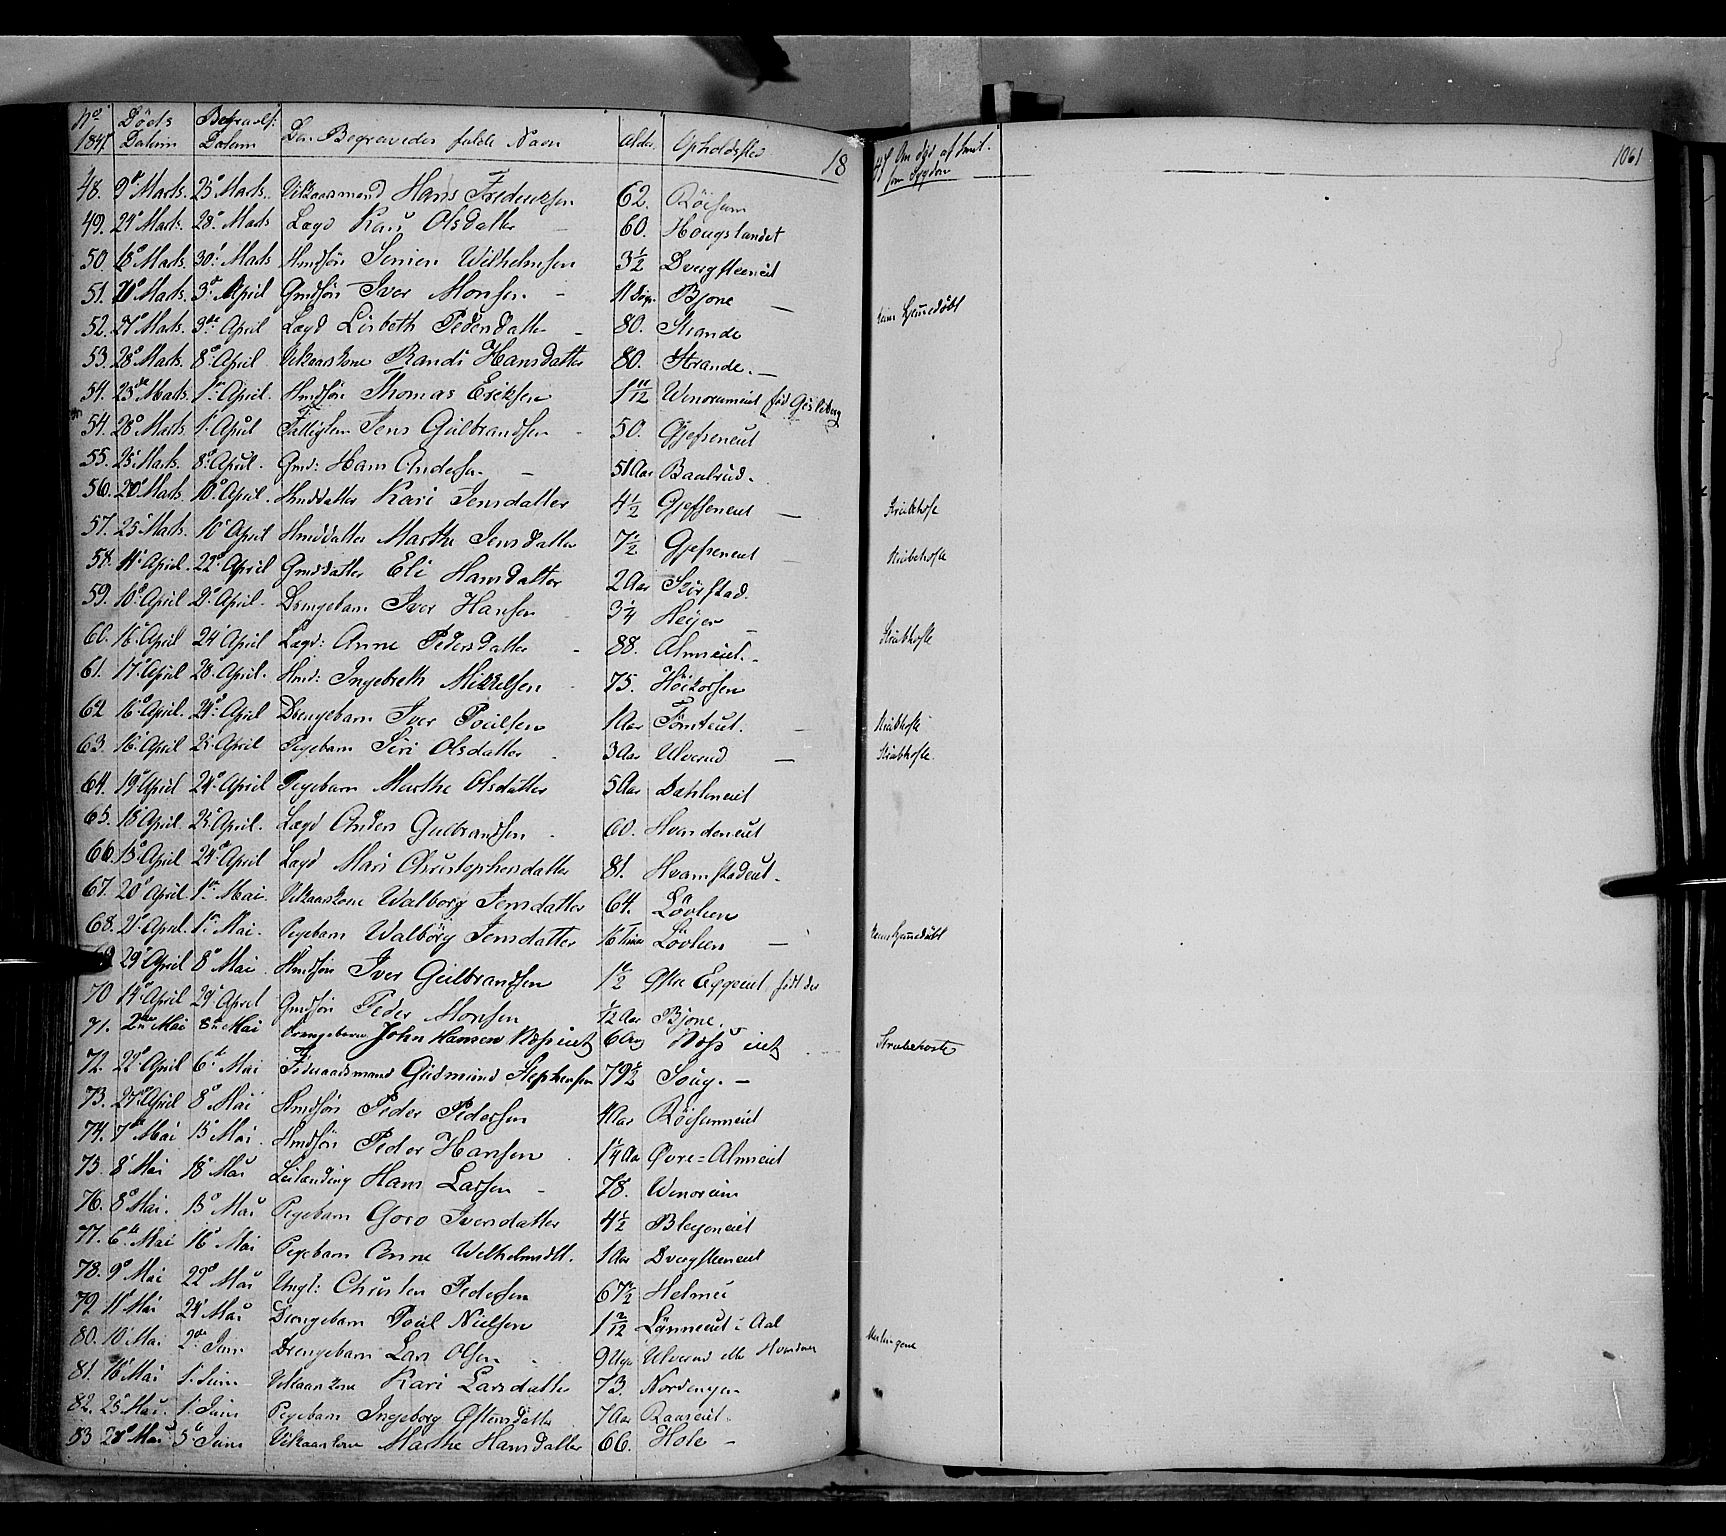 No 1847. Døds Datum Begravels: Datum Den Begravedes fulde Navn Alder. Opholdsted 18
47 Om død af smit. som Sygdom 1061
48. 9de Marts. 23de Marts. Vilkaarsmand Hans Fredericksen 62. Röisum
49. 24de Marts. 28de Marts Lægd Kari Olsdatter 60. Hougslandet
50. 18de Marts. 30te Marts Hmdsön Simen Wilhelmsen 3½ Dvergsteneiet
51. 20de Marts. 3die April Gmdsön Iver Monsen 11 Dage Bjone
52. 27de Marts. 3die April Lægd Lisbeth Pedersdatter 80. Strande
53. 28de Marts. 8de April Vilkaarskone Randi Hansdatter 80. Strande.
54. 23de Marts. 1ste April. Hmdsön Thomas Eriksen 1 11/12 Wenorumeiet född Gisleberg
54. 28de Marts 1ste April Fattiglem Jens Gulbrandsen 50. Gjefseneiet
55. 25de Marts. 8de April. Gmd: Hans Andersen 51 Aar Baalrud.
56. 20de Marts. 10de April. Hmddatter Kari Jensdatter 4½ Gjefseneiet Strubehoste
57. 25de Marts. 10de April Hmddatter Marthe Jensdatter 7½ Gjefseneiet Strubehoste
58. 11te April. 22de April Gmddatter Eli Hansdatter 2 Aar Skirstad.
59. 10de April 2den April. Drengebarn Iver Hansen 3¼ Heyer Strubehoste
60. 16de April 24de April Lægd: Anne Pedersdatter 88. Almeiet.
61. 17de April 28de April. Hmd: Ingebreth Mikkelsen 75. Höikorsen
62 16de April. 24de April Drengebarn Iver Poulsen 1 Aar Tömteiet. Strubehoste
63. 16de April 25de April Pigebarn Siri Olsdatter 3 Aar Ulverud Strubehoste.
64. 19de April 24de April Pigebarn Marthe Olsdatter 5 Aar Dahleneiet
65. 18de April. 25de April. Lægd Anders Gulbrandsen 60. Hvindeneiet
66. 15de April 24de April Lægd Mari Christophersdatter 81. Hvamstadeiet.
67. 20de April 1ste Mai. Vilkaarskone Walborg Jensdatter 64. Lövlien
68. 21de April. 1ste Mai. Pigebarn Walborg Jensdatter 16 Timer Lövlien hjemmedöbt
69. 29de April 8de Mai Hmdsön Iver Gulbrandsen 1½ Eggeiet födt der
70 14de April 29de April Gmdsön Peder Monsen ½ Aar Bjone.
71. 2den Mai 8de Mai Drengebarn John Hansen Næsseiet 6 Aar Næsseiet Strubehoste
72. 22de April 6te Mai Föderaadsmand Gudmund Stephensen 79½ Soug.
73. 27de April 8de Mai Hmdsön Peder Pedersen 4 Aar Röisumeiet
74. 7de Mai 15de Mai. Hmdsön Peder Hansen 1¼ Aar Øvre=Almeiet
75. 8de Mai 18de Mai Leilænding Hans Larsen 78. Wenorum
76. 8de Mai. 15de Mai Pigebarn Goro Iversdatter 4½ Blegeneiet
77. 6te Mai 16de Mai Pigebarn Anne Wilhelmsdtt. 1 Aar Dvergsteneiet
78. 9de Mai 22de Mai Ungk: Christen Pedersen 67½ Helmei
79. 11te Mai 24de Mai Drengebarn Poul Nielsen 1 2/12 Lönneiet i Aal
80. 10de Mai 2den Juni Drengebarn Lars Olsen 9 Uger Ulverud eller Hvinden
81. 16de Mai 1ste Juni Vilkaarskone Kari Larsdatter 73. Nordengen
82. 25de Mai. 1ste Juni Pigebarn Ingeborg Østensdatter 7 Aar Raaseiet.
83 28de Mai 5te Juni Vilkaarskone Marthe Hansdatter 66. Hole